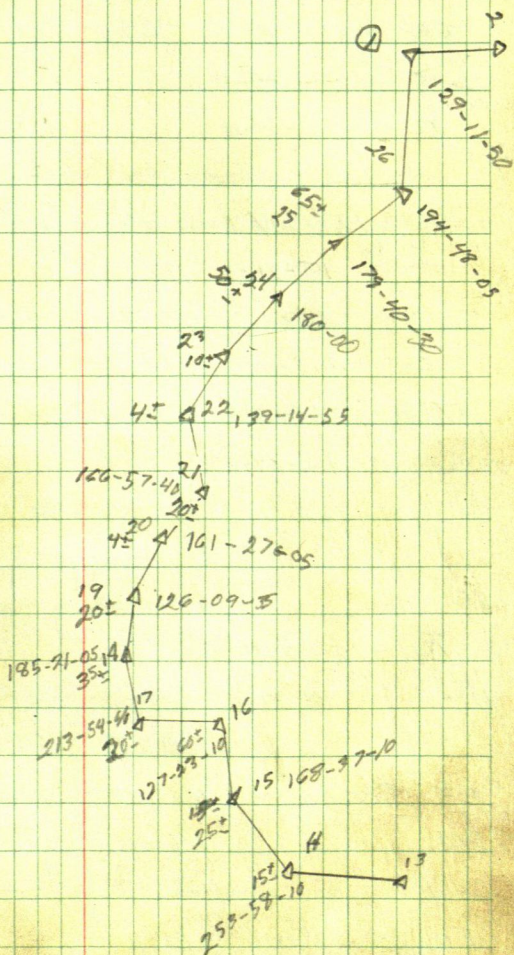 2
1
129-11-50
26
194-48-05
65±
25
179-40-30
50± 24
180-00
23
10±
4± 22 139-14-55
21
166-57-40
20±
20
4± 161-27-05
19 126-09-35
20±
185-21-05
35±
17
16
213-54-
20±
60±
127-23-10
15 168-37-10
25±
14
13
15±
253-58-10